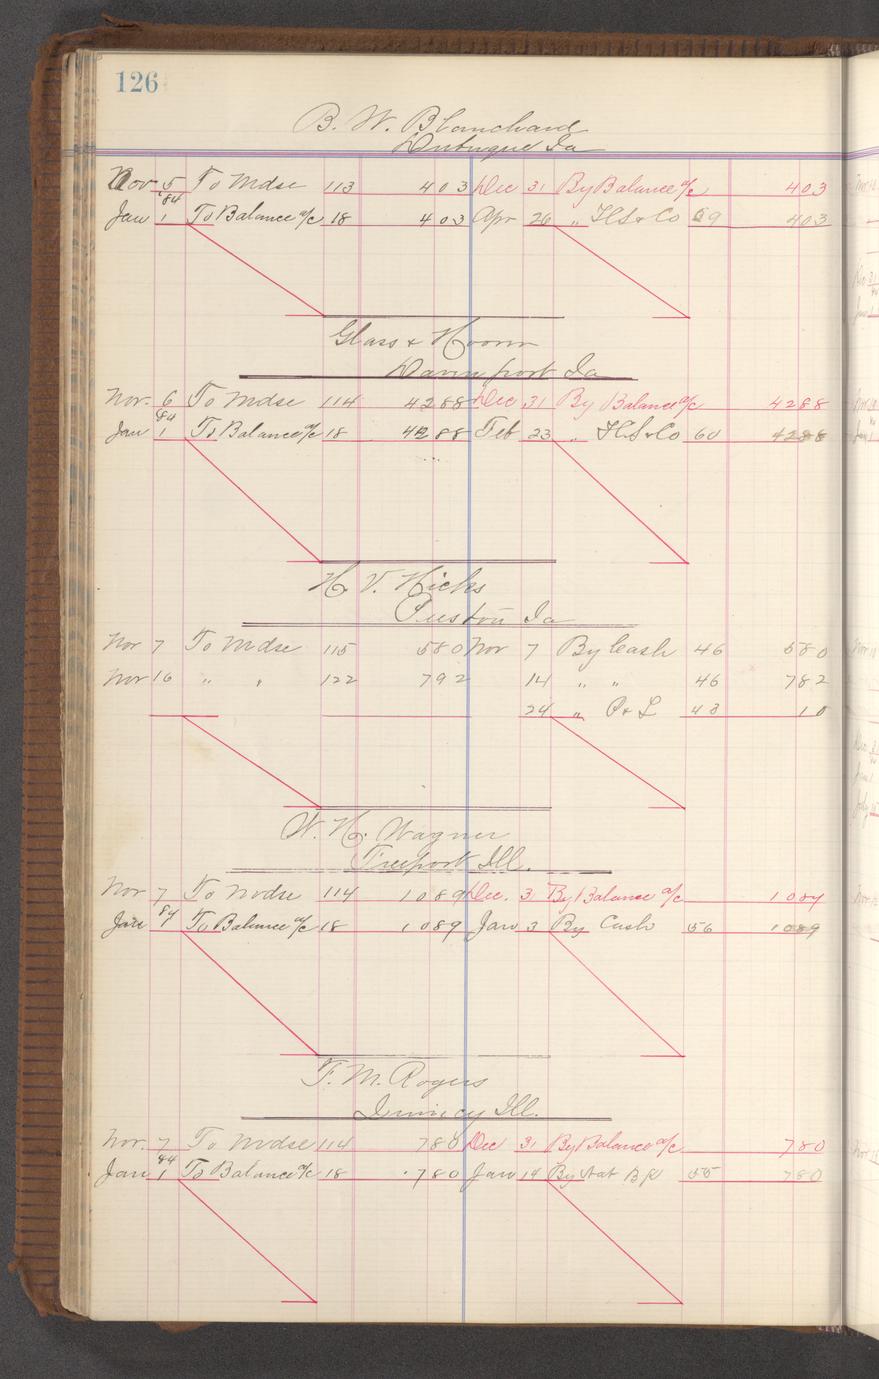 126
B. W. Blanchard
Dubuque Ia
Nov 5 To Mdse 113 403 Dec 31 By Balance a/c 403
'84
Jan 1 To Balance a/c 18 403 Apr 26 " H S & Co 69 403
Glass & Hoover
Davenport Ia
Nov. 6 To Mdse 114 4288 Dec 31 By Balance a/c 4288
84
Jan 1 To Balance a/c 18 4288 Feb 23 " H S & Co 60 4288
H. V. Hicks
Preston Ia
Nov 7 To Mdse 115 580 Nov 7 By Cash 46 580
Nov 16 " " 122 792 14 " " 46 782
24 " P & L 43 10
W. H. Wagner
Freeport Ill.
Nov 7 To Mdse 114 1089 Dec. 31 By Balance a/c 1089
84
Jan 1 To Balance a/c 18 1089 Jan 3 By Cash 56 1089
F. M. Rogers
Quincy Ill.
Nov. 7 To Mdse 114 780 Dec 31 By Balance a/c 780
84
Jan 1 To Balance a/c 18 780 Jan 14 By Nat Bk 55 780